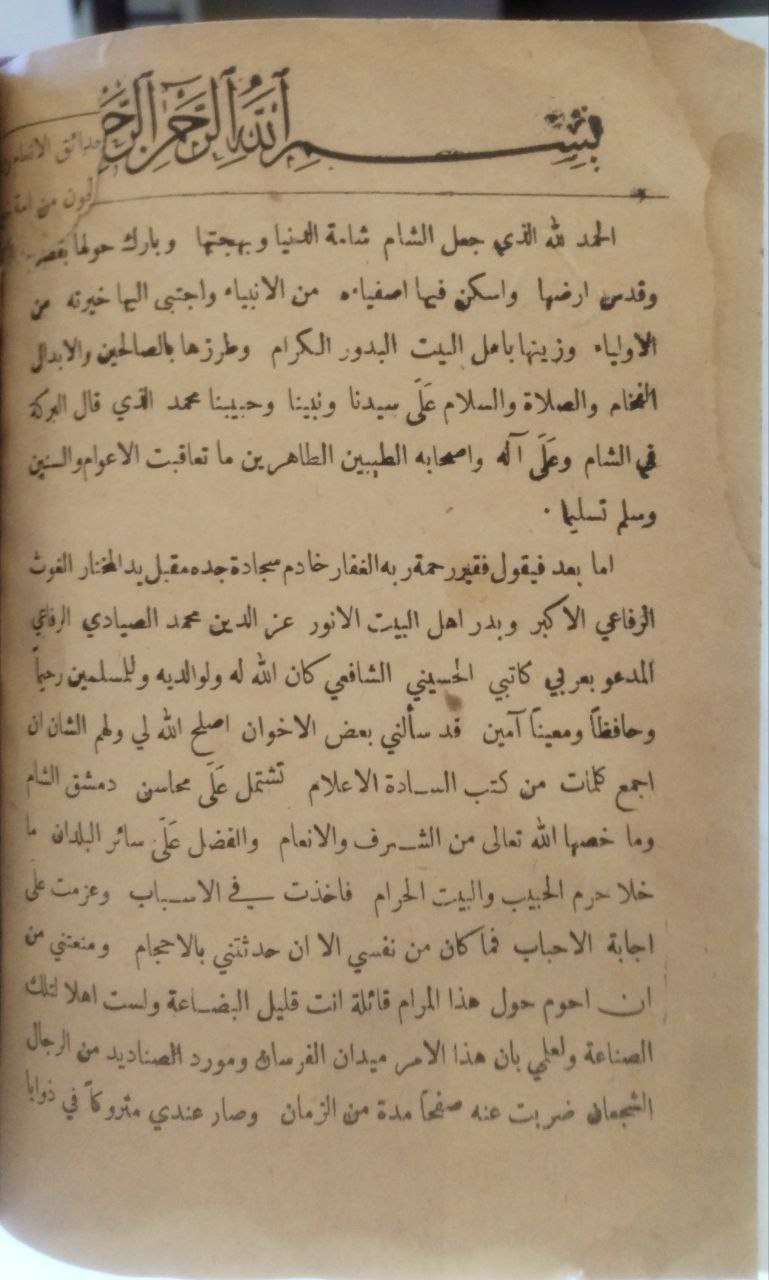 بسم الله الرحمن الرحيم
حدائق الانعام
الحمد لله الذي جعل الشام شامة الدنيا وبهجتها وبارك حولها
وقدس ارضها واسكن فيها اصفياءه من الانبياء واجتبى اليها خيرته من
الاولياء وزينها باهل البيت البدور الكرام وطرزها بالصالحين والابدال
الفخام والصلاة والسلام عَلَى سيدنا ونبينا وحبيبنا محمد الذي قال البركة
في الشام وعَلَى آله واصحابه الطيبين الطاهرين ما تعاقبت الاعوام والسنين
وسلم تسليما .
اما بعد فيقول فقير رحمة ربه الغفار خادم سجادة جده مقبل يد المختار الغوث
الرفاعي الاكبر وبدر اهل البيت الانور عز الدين محمد الصيادي الرفاعي
المدعو بعربي كاتبي الحسيني الشافعي كان الله له ولوالديه وللمسلمين رحيماً
وحافظاً ومعيناً آمين قد سألني بعض الاخوان اصلح الله لي ولهم الشان ان
اجمع كلمات من كتب الســادة الاعلام تشتمل عَلَى محاسن دمشق الشام
وما خصها الله تعالى من الشــرف والانعام والفضل عَلَى سائر البلدان ما
خلا حرم الحبيب والبيت الحرام فاخذت في الاســباب وعزمت علَى
اجابة الاحباب فما كان من نفسي الا ان حدثتني بالاحجام ومنعتني من
ان احوم حول هذا المرام قائلة انت قليل البضــاعة ولست اهلا لتلك
الصناعة ولعلمي بان هذا الامر ميدان الفرسان ومورد الصناديد من الرجال
الشجعان ضربت عنه صفحاً مدة من الزمان وصار عندي متروكاً في ذوايا